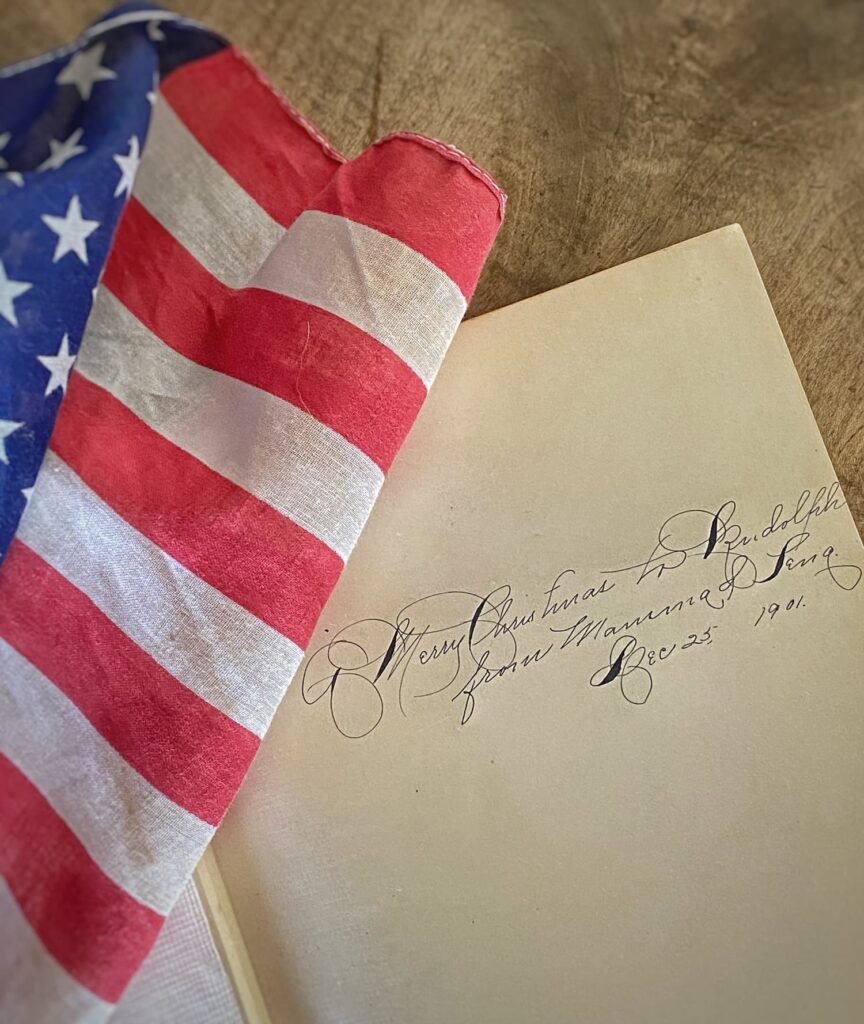 Merry Christmas to Rudolph
from Mamma &
Dec 25. 1901.